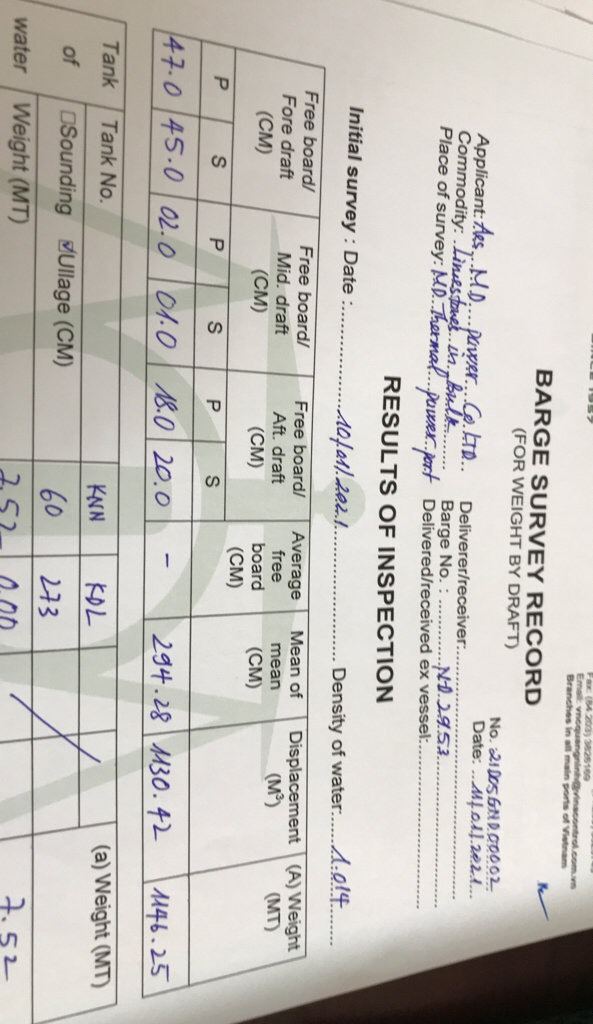 Fax: (84.203) 3826169
Email: vncquangninh@vinacontrol.com.vn
Branches in all main ports of Vietnam
BARGE SURVEY RECORD
(FOR WEIGHT BY DRAFT)
No. 21D05GND00002
Date: ...11/01/2021...
Applicant: Aes...MD...power...Co.LTD.. Deliverer/receiver:
Commodity: ..Limestones in bulk.......... Barge No. : ............ND 2953
Place of survey: MD Thermal power port Delivered/received ex vessel:
RESULTS OF INSPECTION
Initial survey : Date :....................10/01/2021.................... Density of water:......1.014........
Free board/ Fore draft (CM) Free board/ Mid. draft (CM) Free board/ Aft. draft (CM) Average free board (CM) Mean of mean (CM) Displacement (M³) (A) Weight (MT)
P S P S P S
47.0 45.0 02.0 01.0 18.0 20.0 - 294.28 1130.42 1146.25
Tank Tank No. KNN KDL (a) Weight (MT)
of □Sounding ☑Ullage (CM) 60 273
water Weight (MT) 7.52 0.00 7.52